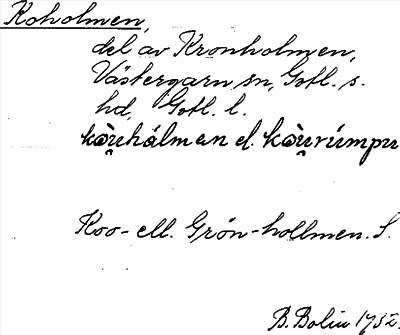 Koholmen,
del av Kronholmen,
Västergarn sn, Gotl. s.
hd, Gotl. l.
kòu̯hálman el. kòu̯rúmpu
Koo- ell. Grön-hollmen. S.
B. Bolin 1732.